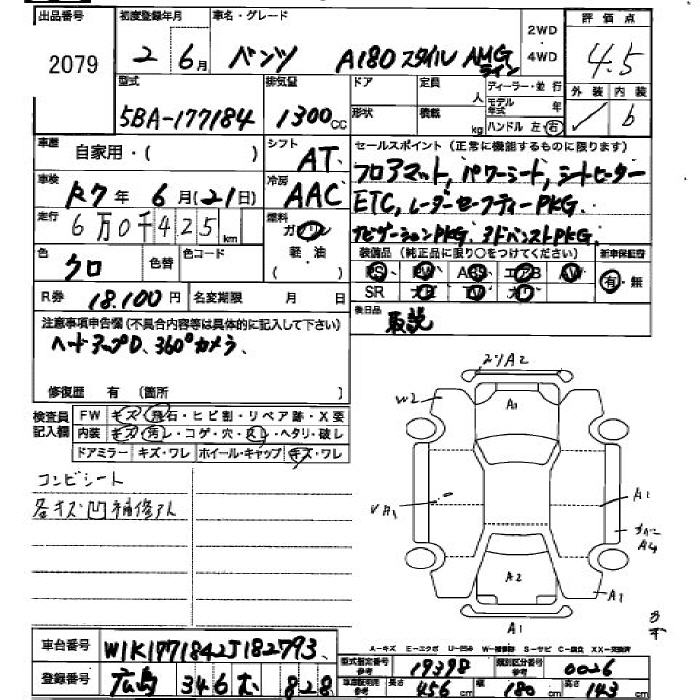 出品番号 初度登録年月 車名・グレード 2WD 4WD 評価点
2079 2 6月 ベンツ A180 スタイル AMGライン 4.5
型式 排気量 ドア 定員 人 ディーラー・並行 外装 内装
5BA-177184 1300cc 形状 積載 kg モデル年式 年 b
ハンドル 左・右
車歴 自家用・( ) シフト AT セールスポイント (正常に機能するものに限ります)
車検 R7年 6月(21日) 冷房 AAC フロアマット, パワーシート, シートヒーター
走行 6万0千425km 燃料 ガソリン ETC, レーダーセーフティーPKG.
軽・油 ナビゲーションPKG. アドバンストPKG.
色 クロ 色替 色コード 装備品 (純正品に限り○をつけてください) 新車保証書
PS PW ABS エアB AW 有・無
R券 18.100円 名変期限 月 日 SR TV
注意事項申告欄 (不具合内容等は具体的に記入して下さい) 後日品 取説
ヘッドアップD、360°カメラ、
修復歴 有 (箇所 )
検査員記入欄 FW キズ・飛石・ヒビ割・リペア跡・X要
内装 キズ・汚レ・コゲ・穴・スレ・ヘタリ・破レ
ドアミラー キズ・ワレ ホイール・キャップ キズ・ワレ
コンビシート
各キズ凹補修アト
A2
W2
A1
A1
A2
A1
A1
A-キズ E-エクボ U-凹ミ W-補修跡 S-サビ C-腐食 XX-交換済
車台番号 W1K1771842J182793
型式指定番号 参考 19398 類別区分番号 参考 0026
登録番号 広島 346 828
車庫証明用 参考 長さ 456cm 幅 180cm 高さ 143cm